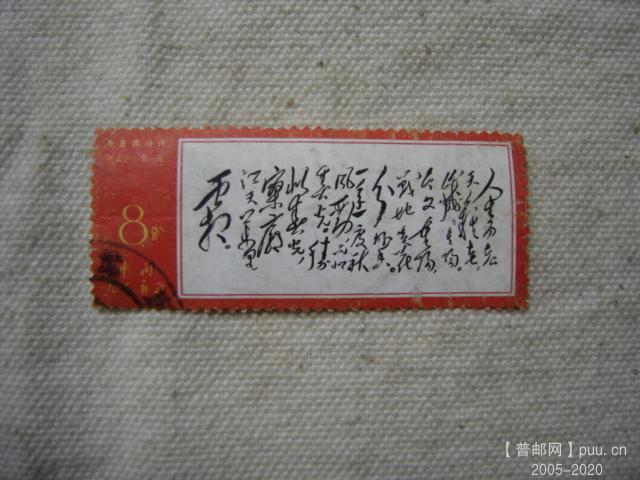 毛主席诗词
8分
中国
人生易老
天难老,
岁岁重阳。
今又重阳,
战地黄花
分外香。
一年一度秋
风劲,不似
春光。胜
似春光,
寥廓
江天万里
霜。
【普邮网】puu.cn
2005-2020